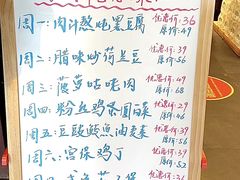 周一:肉汁熬炖黑豆腐 优惠价:36
原价:49
周二:腊味炒荷兰豆 优惠价:39
原价:56
周三:菠萝咕咾肉 优惠价:39
原价:58
周四:粉丝鸡杂圆菜 优惠价:29
原价:46
周五:豆豉鲮鱼油麦菜 优惠价:39
原价:52
周六:宫保鸡丁 优惠价:36
原价:56